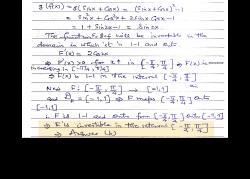 g(f(x)) = g(sinx + Cosx) = (Sinx + Cosx)² - 1
= Sin²x + Cos²x + 2Sinx Cosx - 1
= 1 + Sin2x - 1 = Sin2x
The function F = gof will be invertible in the
domain in which it is 1-1 and onto
F'(x) = 2Cos2x
⇒ F'(x) > 0 for x in [-π/4, π/4] ⇒ F(x) is
increasing in [-π/4, π/4]
⇒ F(x) is 1-1 in the interval [-π/4, π/4]
Now F: [-π/4, π/4] → [-1,1]
and = [-1,1] ⇒ F maps [-π/4, π/4] onto
[-1,1]
∴ F is 1-1 and onto from [-π/4, π/4] onto [-1,1]
⇒ F is invertible in the interval [-π/4, π/4]
⇒ Answer (b)